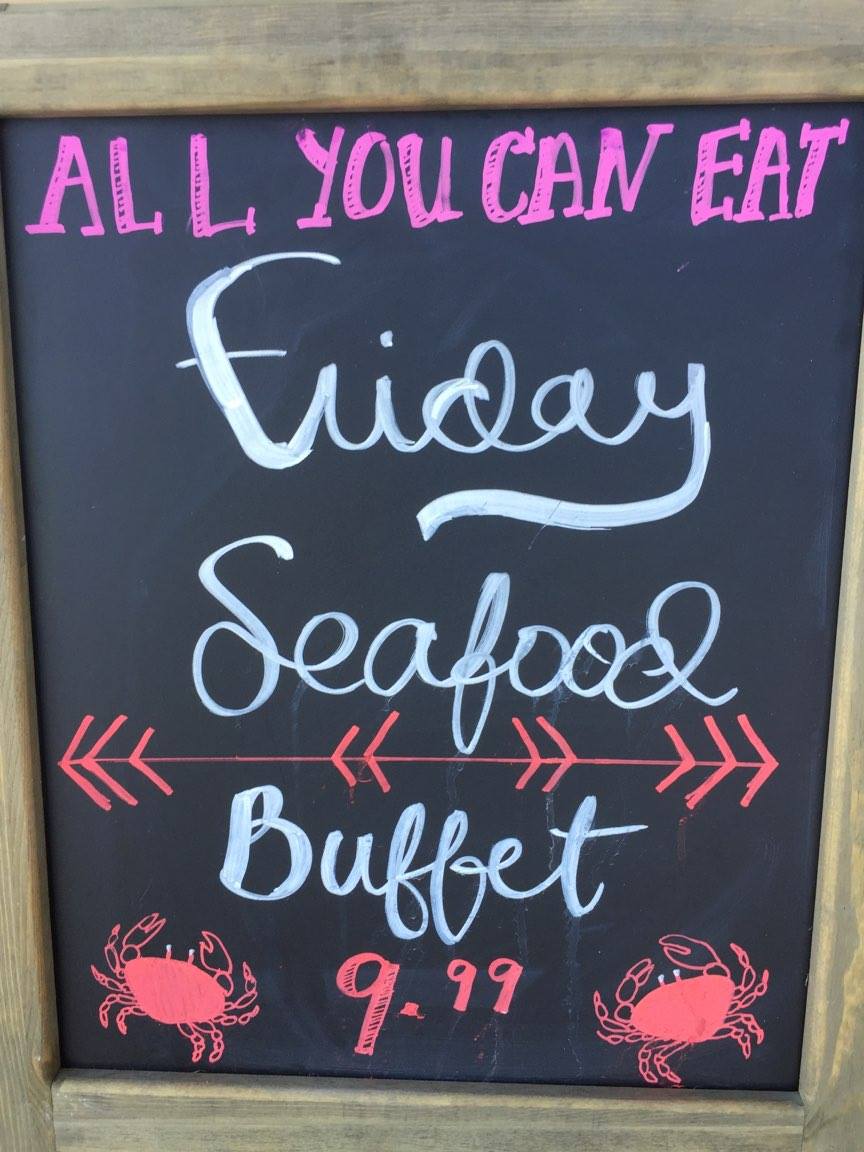 ALL YOU CAN EAT
Friday
Seafood
Buffet
9.99